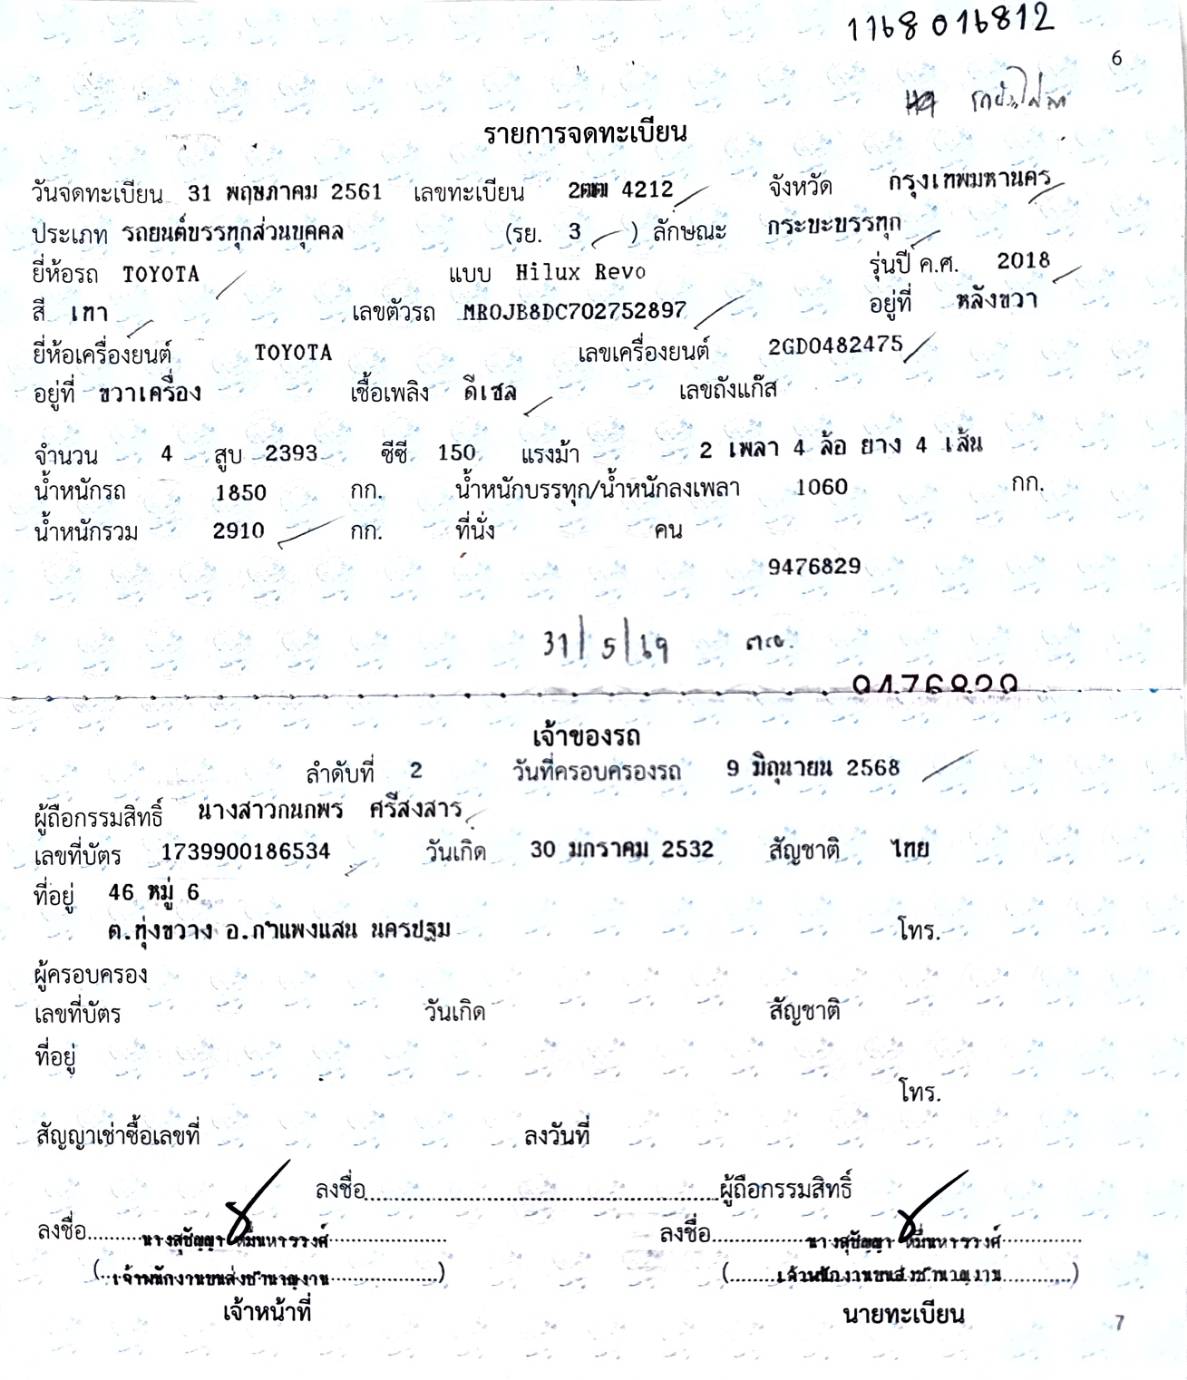 1168016812
6
รายการจดทะเบียน
วันจดทะเบียน 31 พฤษภาคม 2561 เลขทะเบียน 2ฒฒ 4212 จังหวัด กรุงเทพมหานคร
ประเภท รถยนต์บรรทุกส่วนบุคคล (รย. 3 ) ลักษณะ กระบะบรรทุก
ยี่ห้อรถ TOYOTA แบบ Hilux Revo รุ่นปี ค.ศ. 2018
สี เทา เลขตัวรถ MR0JB8DC702752897 อยู่ที่ หลังขวา
ยี่ห้อเครื่องยนต์ TOYOTA เลขเครื่องยนต์ 2GD0482475
อยู่ที่ ขวาเครื่อง เชื้อเพลิง ดีเซล เลขถังแก๊ส
จำนวน 4 สูบ 2393 ซีซี 150 แรงม้า 2 เพลา 4 ล้อ ยาง 4 เส้น
น้ำหนักรถ 1850 กก. น้ำหนักบรรทุก/น้ำหนักลงเพลา 1060 กก.
น้ำหนักรวม 2910 กก. ที่นั่ง คน
9476829
31/5/69
เจ้าของรถ
ลำดับที่ 2 วันที่ครอบครองรถ 9 มิถุนายน 2568
ผู้ถือกรรมสิทธิ์ นางสาวกนกพร ศรีสงสาร
เลขที่บัตร 1739900186534 วันเกิด 30 มกราคม 2532 สัญชาติ ไทย
ที่อยู่ 46 หมู่ 6
ต.ทุ่งขวาง อ.กำแพงแสน นครปฐม โทร.
ผู้ครอบครอง
เลขที่บัตร วันเกิด สัญชาติ
ที่อยู่
โทร.
สัญญาเช่าซื้อเลขที่ ลงวันที่
ลงชื่อ ผู้ถือกรรมสิทธิ์
ลงชื่อ นางสุชัญญา หมื่นหารวงศ์ ลงชื่อ นางสุชัญญา หมื่นหารวงศ์
(เจ้าพนักงานขนส่งชำนาญงาน) (เจ้าพนักงานขนส่งชำนาญงาน)
เจ้าหน้าที่ นายทะเบียน
7